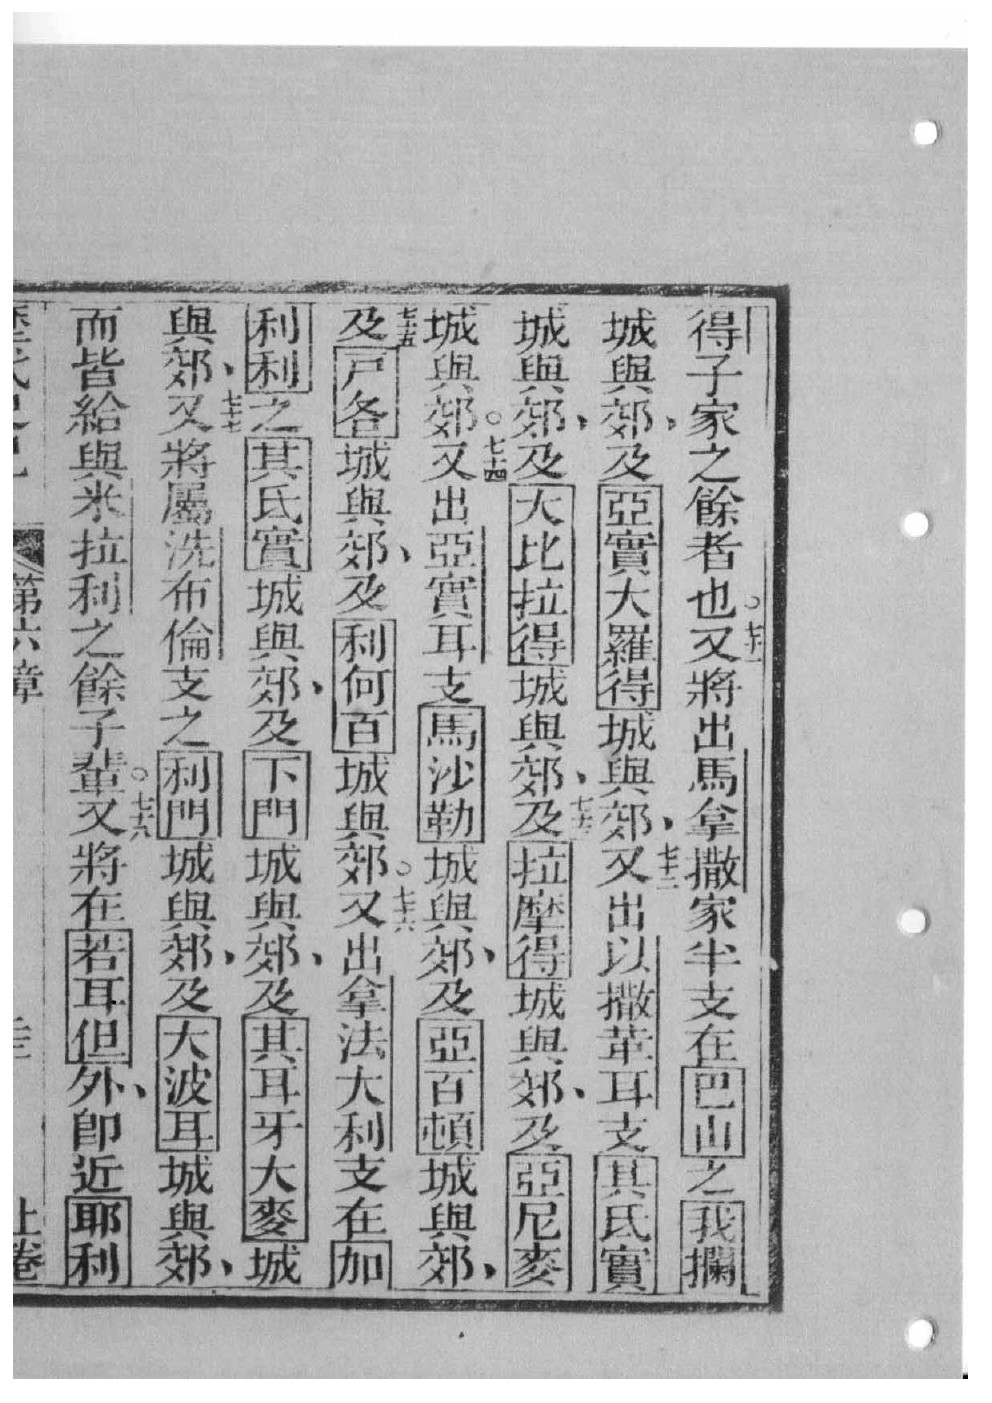 得子家之餘者也。七十一又將出馬拿撒家半支在巴山之我攔
城與郊、及亞實大羅得城與郊、七十二又出以撒革耳支其氏實
城與郊、及大比拉得城與郊、七十三及拉摩得城與郊、及亞尼麥
城與郊。七十四又出亞實耳支馬沙勒城與郊、及亞百頓城與郊、
七十五及戶各城與郊、及利何百城與郊。七十六又出拿法大利支在加
利利之其氏實城與郊、及下門城與郊、及其耳牙大麥城
與郊、七十七又將屬洗布倫支之利門城與郊、及大波耳城與郊、
而皆給與米拉利之餘子輩。七十八又將在若耳但外、即近耶利
第六章 上卷